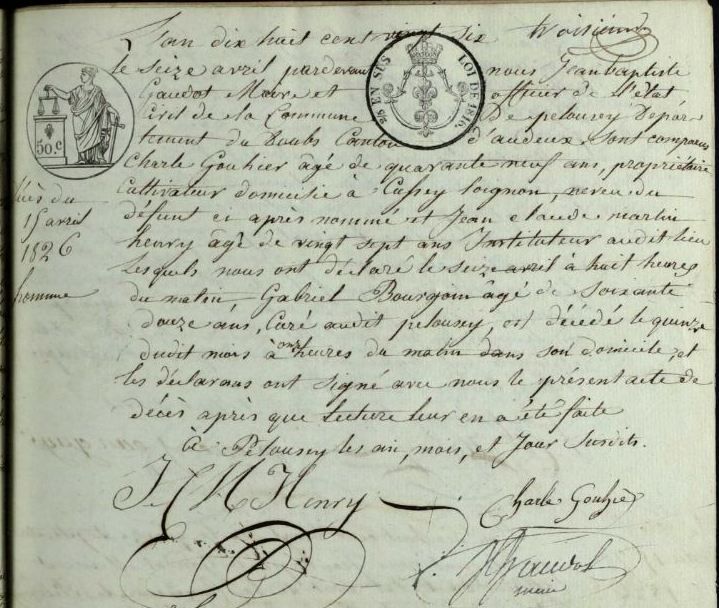 L'an dix huit cent vingt six troisième
le seize avril pardevant nous Jean baptiste
Gaudot Maire et officier de L'état
Civil de la Commune De pelousey Dépar
tement du Doubs Canton d'audeux, sont comparus
Charle Gouhier âgé de quarante neuf ans, propriétaire
Cultivateur domicilié à Cussey Loignon, neveu du
défunt ci après nommé et Jean claude martin
henry âgé de vingt sept ans Instituteur audit lieu
Lesquels nous ont déclaré le seize avril à huit heures
du matin Gabriel Bourgoin âgé de soixante
douze ans, Curé audit pelousey, est décédé le quinze
dudit mois à onze heures du matin dans son domicile, et
les déclarans ont signé avec nous le présent acte de
décès après que Lecture leur en a été faite
À Pelousey les an, mois, et Jour susdits.
J C M Henry
Charle Gouhier
Gaudot
maire
50. C
25 EN SUS
LOI DE 1816
du
15 avril
1826
homme